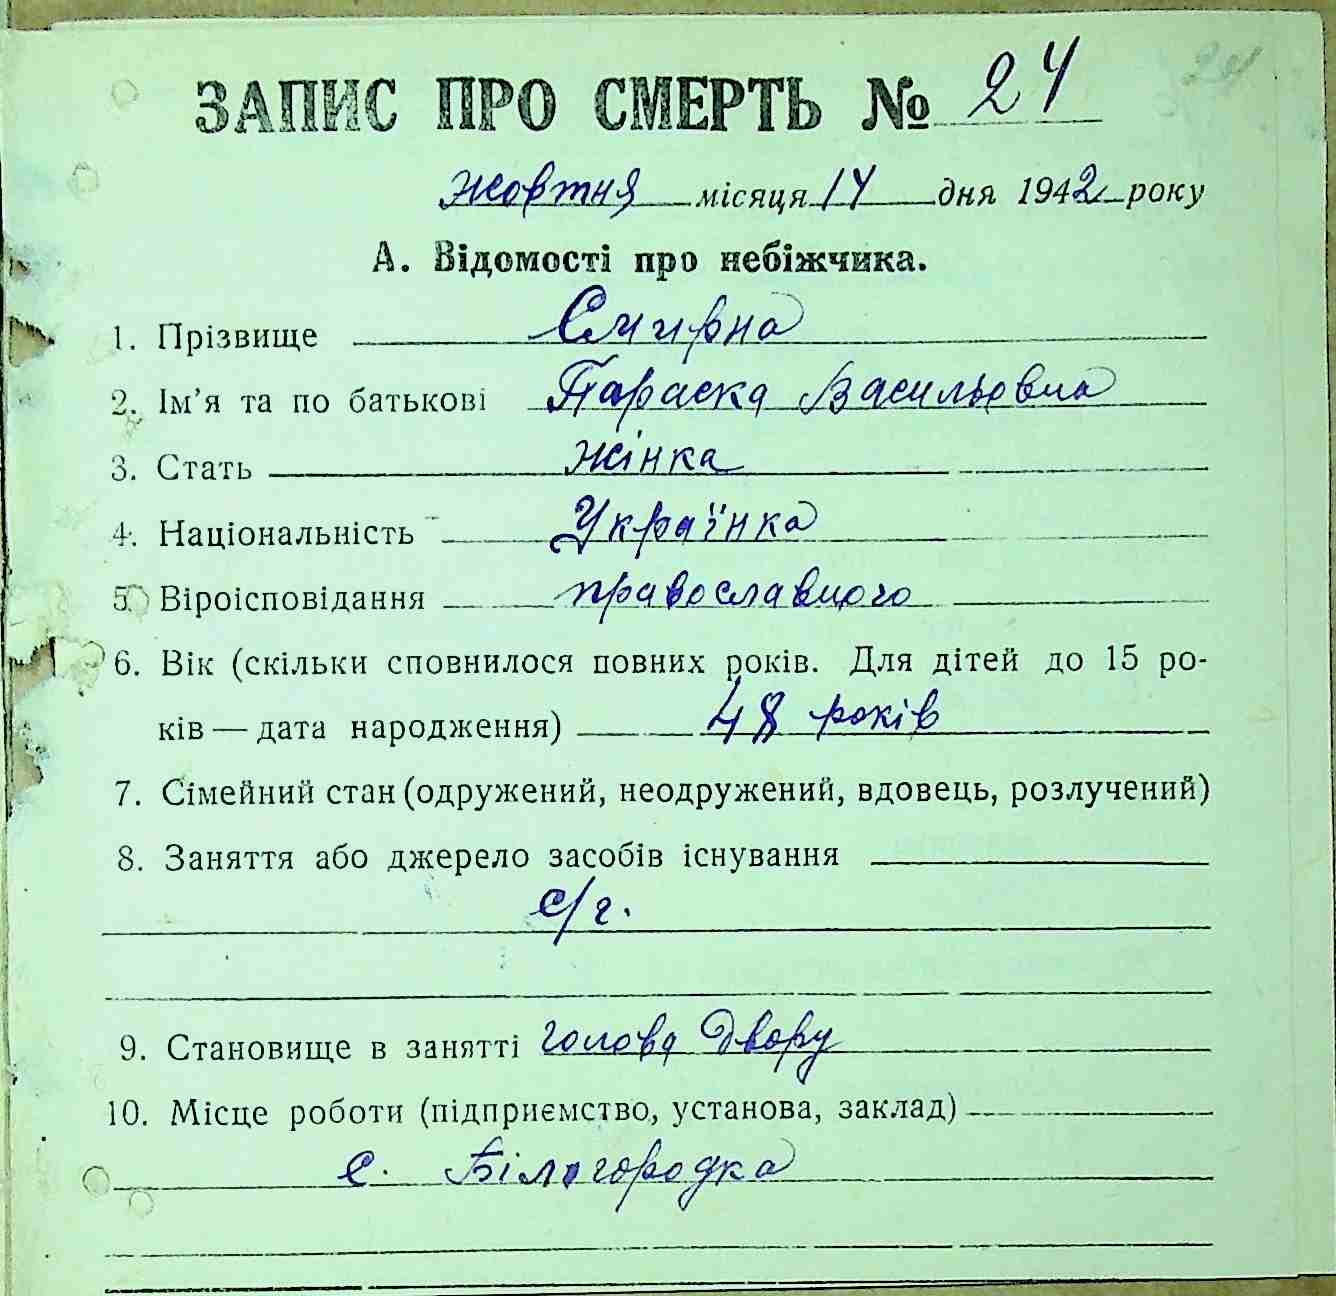 24
ЗАПИС ПРО СМЕРТЬ № 24
жовтня місяця 14 дня 1942 року
А. Відомості про небіжчика.
1. Прізвище Смирна
2. Ім'я та по батькові Параска Васильовна
3. Стать жінка
4. Національність Українка
5. Віроісповідання православного
6. Вік (скільки сповнилося повних років. Для дітей до 15 ро-
ків — дата народження) 48 років
7. Сімейний стан (одружений, неодружений, вдовець, розлучений)
8. Заняття або джерело засобів існування
с/г.
9. Становище в занятті голова двору
10. Місце роботи (підприємство, установа, заклад)
с. Білогородка